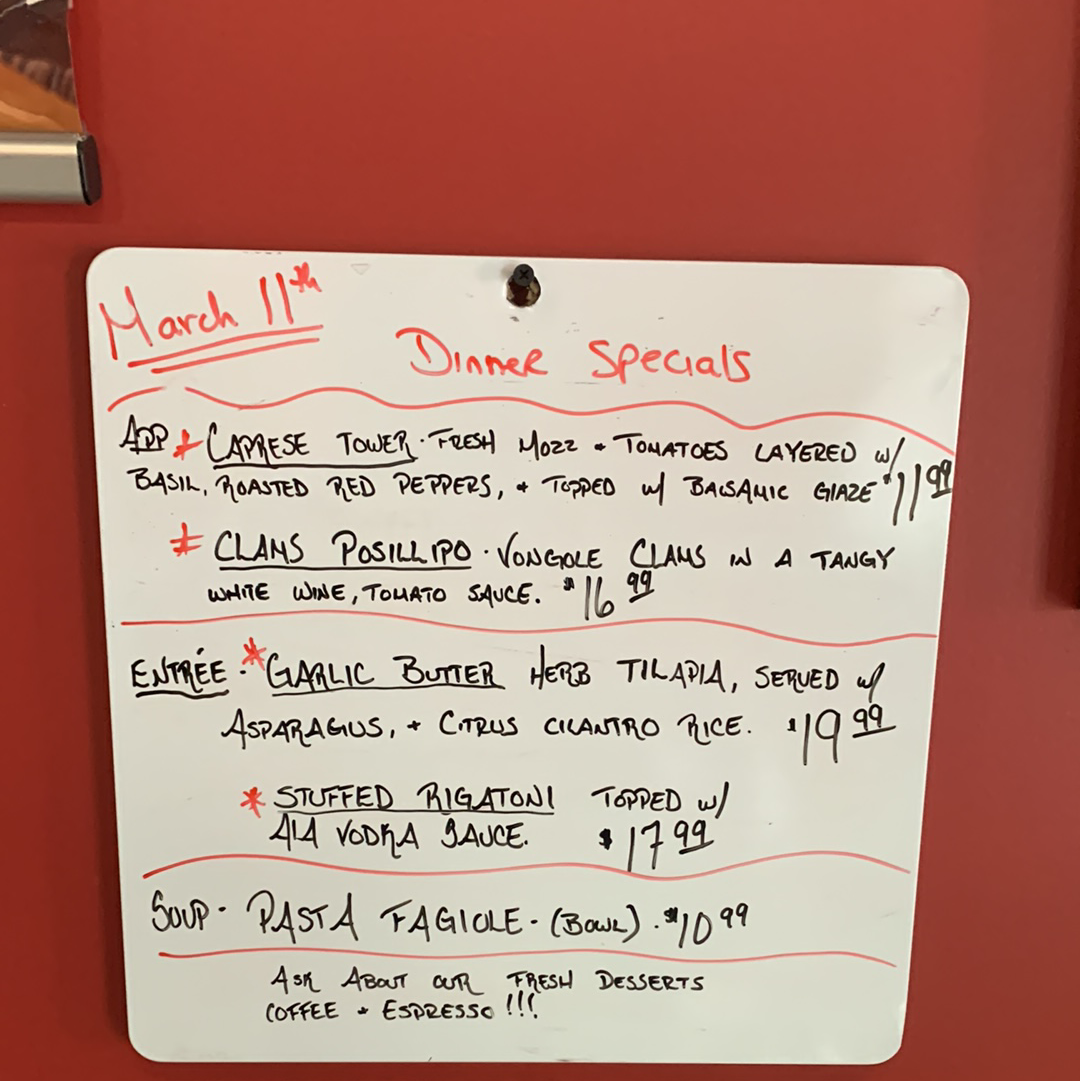 March 11th
Dinner Specials
APP * CAPRESE TOWER · FRESH MOZZ + TOMATOES LAYERED w/
BASIL, ROASTED RED PEPPERS, + TOPPED w/ BALSAMIC GLAZE $11 99
* CLAMS POSILLIPO · VONGOLE CLAMS IN A TANGY
WHITE WINE, TOMATO SAUCE. $16 99
ENTRÉE · * GARLIC BUTTER HERB TILAPIA, SERVED w/
ASPARAGUS, + CITRUS CILANTRO RICE. $19 99
* STUFFED RIGATONI TOPPED w/
ALA VODKA SAUCE. $17 99
SOUP - PASTA FAGIOLE - (BOWL) . $10 99
ASK ABOUT OUR FRESH DESSERTS
COFFEE + ESPRESSO !!!